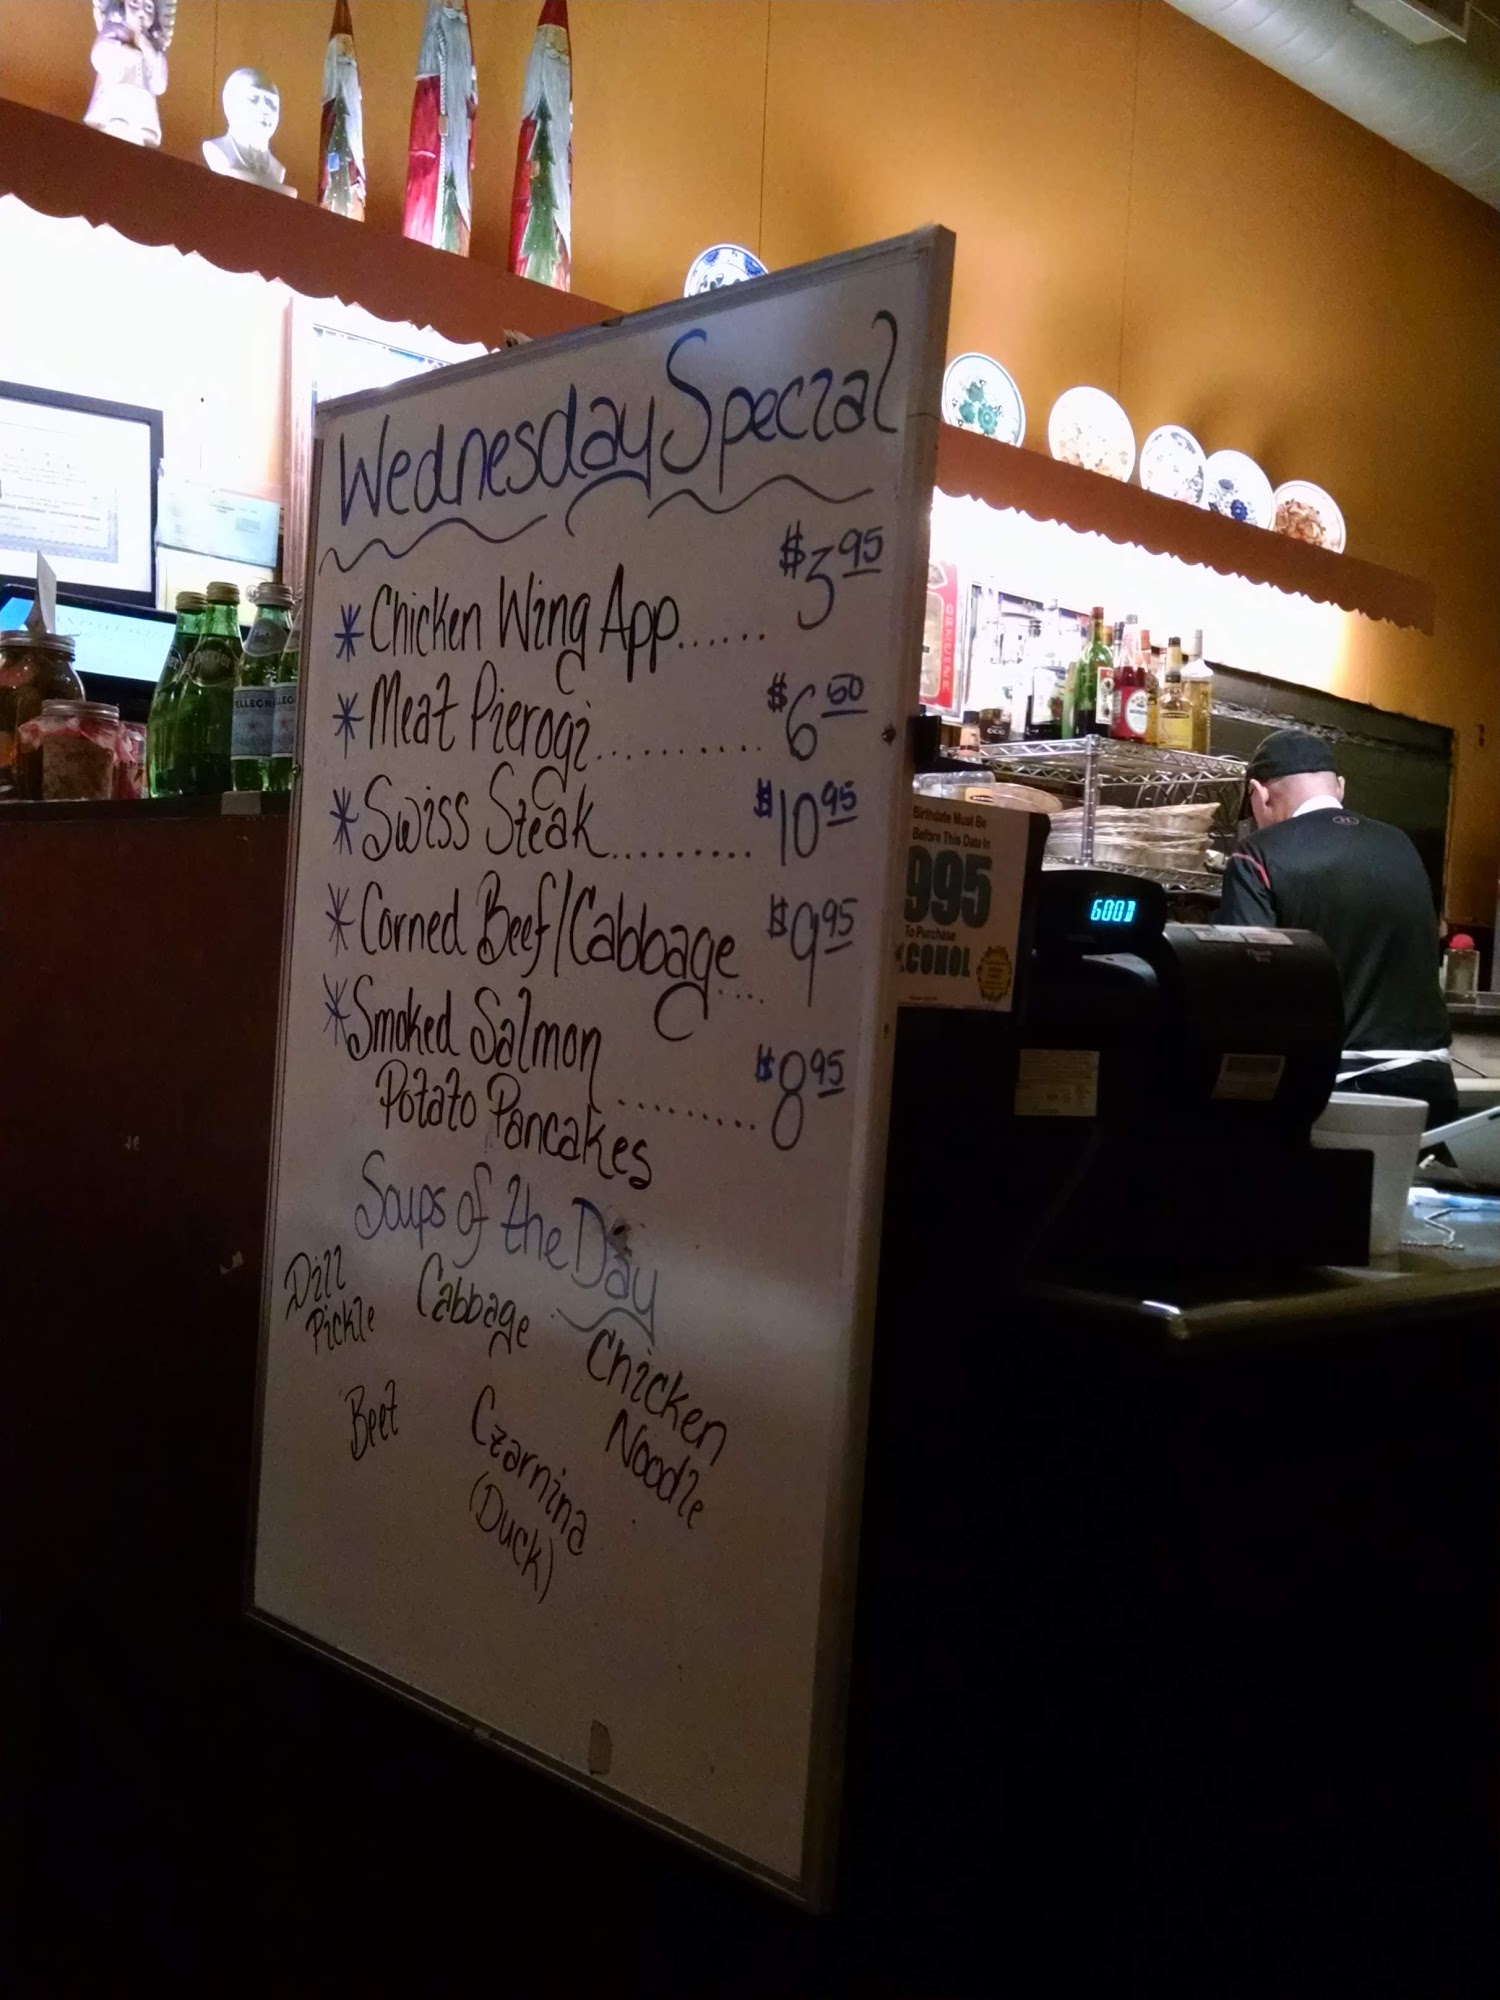 Wednesday Special
* Chicken Wing App...... $3.95
* Meat Pierogi........... $6.50
* Swiss Steak.......... $10.95
* Corned Beef/Cabbage.... $9.95
* Smoked Salmon
Potato Pancakes ......... $8.95
Soups of the Day
Dill
Pickle
Cabbage
Chicken
Noodle
Beet
Czarnina
(Duck)
Birthdate Must Be
Before This Date In
995
To Purchase
COHOL
GOOD
PELLEGR
GENUINE